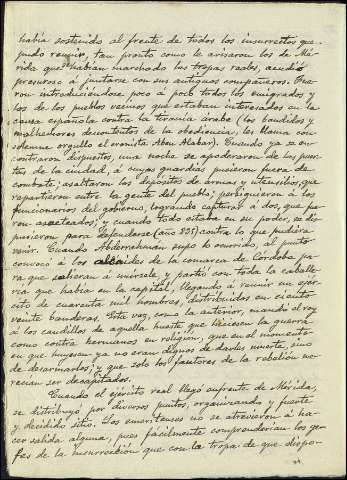 había sostenido al frente de todos los insurrectos que
pudo reunir. Tan pronto como le avisaron los de Mé-
rida que habían marchado las tropas reales, acudió
presuroso á juntarse con sus antiguos compañeros. Fue-
ron introduciéndose poco á poco todos los emigrados y
los de los pueblos vecinos que estaban interesados en la
causa española contra la tiranía árabe (los bandidos y
malhechores descontentos de la obediencia, les llama con
solemne orgullo el cronista Abou Alabar). Cuando ya se en-
contraron dispuestos, una noche se apoderaron de las puer-
tas de la ciudad, á cuyas guardias pusieron fuera de
combate; asaltaron los depósitos de armas y utensilios que
repartieron entre la gente del pueblo; persiguieron á los
funcionarios del gobierno, logrando capturar á dos, que fue-
ron asaeteados; y cuando todo estaba en su poder, se dis-
pusieron para defenderse (año 835) contra lo que pudiera
venir. Cuando Abderrahman supo lo ocurrido, al punto
convocó á los alcaides de la comarca de Córdoba pa-
ra que salieran á unírsele y partió con toda la caballe-
ría que había en la capital, llegando á reunir un ejér-
cito de cuarenta mil hombres, distribuidos en ciento
veinte banderas. Esta vez, como la anterior, mandó el rey
á los caudillos de aquella hueste que hiciesen la guerra
como contra hermanos en religión; que en el momento
en que huyesen ya no eran dignos de darles muerte, sino
de desarmarlos; y que solo los fautores de la rebelión me-
recían ser decapitados.
Cuando el ejército real llegó enfrente de Mérida,
se distribuyó por diversos puntos, organizando y fuerte
y decidido sitio. Los emeritenses no se atrevieron á ha-
cer salida alguna, pues fácilmente comprendieron los ge-
fes de la insurrección que con la tropa de que dispo-